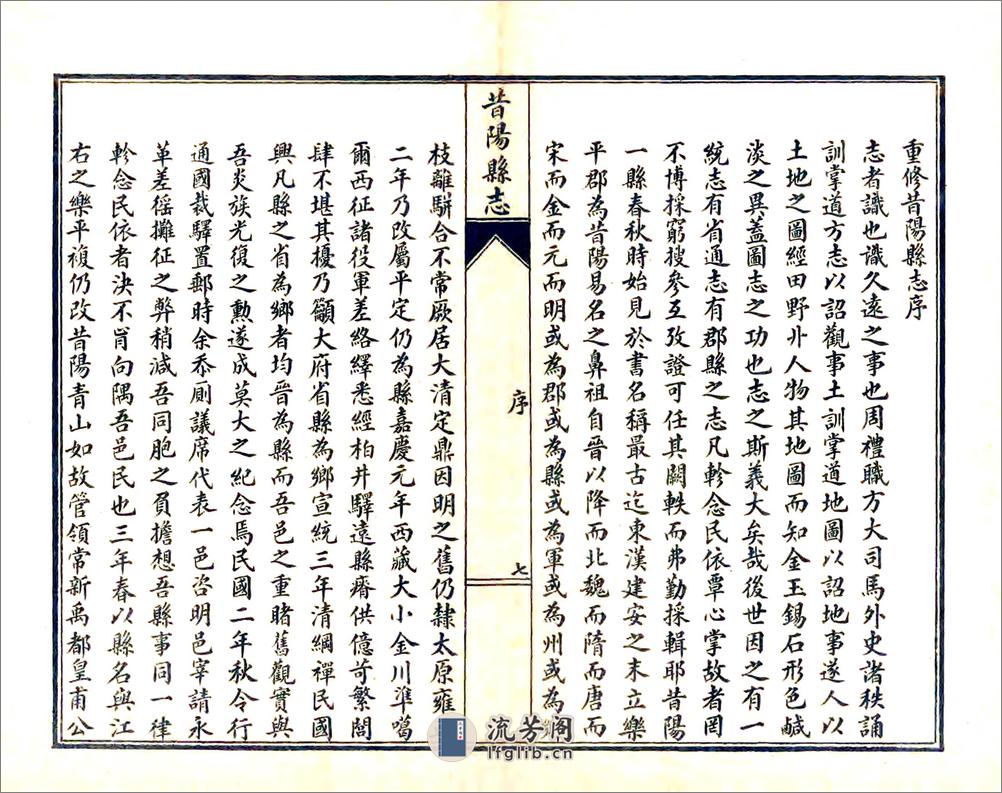 重修昔陽縣志序
志者識也識久遠之事也周禮職方大司馬外史諸秩誦
訓掌道方志以詔觀事土訓掌道地圖以詔地事遂人以
土地之圖經田野廾人物其地圖而知金玉錫石形色鹹
淡之異蓋圖志之功也志之斯義大矣哉後世因之有一
統志有省通志有郡縣之志凡軫念民依覃心掌故者罔
不博採窮搜參互攷證可任其闕軼而弗勤採輯耶昔陽
一縣春秋時始見於書名稱最古迄東漢建安之末立樂
平郡為昔陽易名之鼻祖自晉以降而北魏而隋而唐而
宋而金而元而明或為郡或為縣或為軍或為州或為
昔陽縣志
序
七
枝離駢合不常厥居大清定鼎因明之舊仍隸太原雍
二年乃改屬平定仍為縣嘉慶元年西藏大小金川準噶
爾西征諸役軍差絡繹悉經柏井驛遠縣瘠供億苛繁閭
肆不堪其擾乃籲大府省縣為鄉宣統三年清綱禪民國
興凡縣之省為鄉者均晉為縣而吾邑之重睹舊觀實與
吾炎族光復之勲遂成莫大之紀念焉民國二年秋令行
通國裁驛置郵時余忝厠議席代表一邑咨明邑宰請永
革差徭攤征之弊稍減吾同胞之負擔想吾縣事同一律
軫念民依者決不肯向隅吾邑民也三年春以縣名與江
右之樂平複仍改昔陽青山如故管領常新禹都皇甫公
流芳阁
lfglib.cn